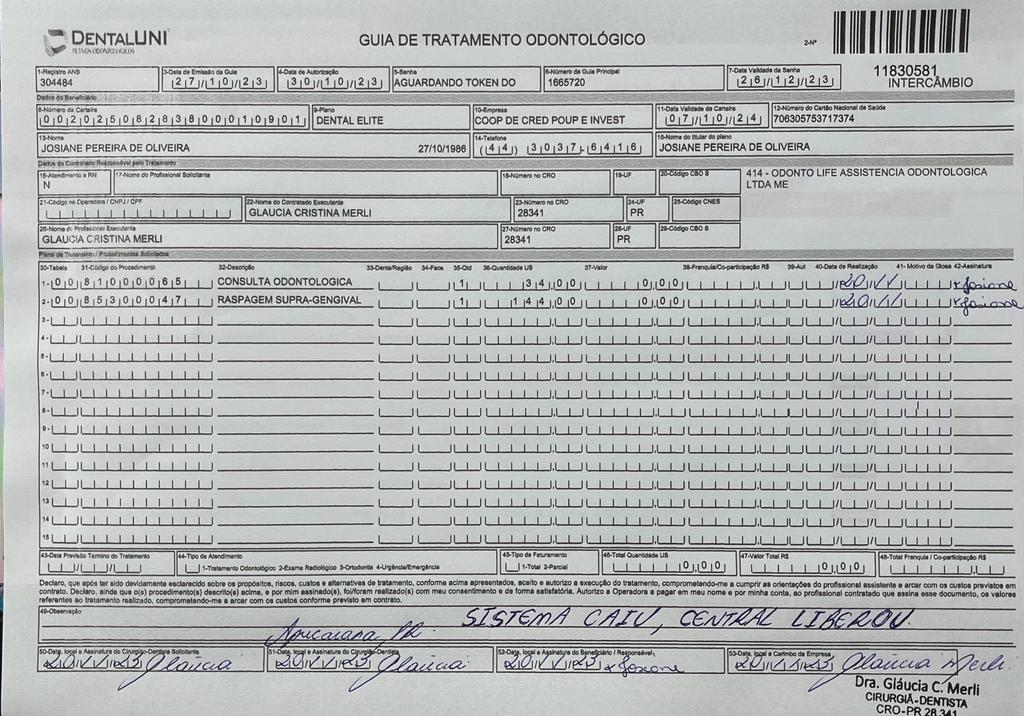 DENTALUNI
PLANOS ODONTOLÓGICOS
GUIA DE TRATAMENTO ODONTOLÓGICO
2-Nº
11830581
INTERCÂMBIO
1-Registro ANS
304484
3-Data de Emissão da Guia
27/10/23
4-Data de Autorização
30/10/23
5-Senha
AGUARDANDO TOKEN DO
6-Número da Guia Principal
1665720
7-Data Validade da Senha
26/12/23
Dados do Beneficiário
8-Número da Carteira
00202508283800010901
9-Plano
DENTAL ELITE
10-Empresa
COOP DE CRED POUP E INVEST
11-Data Validade da Carteira
07/10/24
12-Número do Cartão Nacional de Saúde
706305753717374
13-Nome
JOSIANE PEREIRA DE OLIVEIRA 27/10/1986
14-Telefone
(44) 3037-6416
15-Nome do titular do plano
JOSIANE PEREIRA DE OLIVEIRA
Dados do Contratado Responsável pelo Tratamento
16-Atendimento a RN
N
17-Nome do Profissional Solicitante
18-Número no CRO
19-UF
20-Código CBO S
414 - ODONTO LIFE ASSISTENCIA ODONTOLOGICA
LTDA ME
21-Código na Operadora / CNPJ / CPF
22-Nome do Contratado Executante
GLAUCIA CRISTINA MERLI
23-Número no CRO
28341
24-UF
PR
25-Código CNES
26-Nome do Profissional Executante
GLAUCIA CRISTINA MERLI
27-Número no CRO
28341
28-UF
PR
29-Código CBO S
Plano de Tratamento / Procedimentos Solicitados
30-Tabela 31-Código do Procedimento 32-Descrição 33-Dente/Região 34-Face 35-Qtd 36-Quantidade US 37-Valor 38-Franquia/Co-participação R$ 39-Aut 40-Data de Realização 41- Motivo da Glosa 42-Assinatura
1- 00 81000065 CONSULTA ODONTOLOGICA 1 34,00 0,00 20/11 x Josiane
2- 00 85300047 RASPAGEM SUPRA-GENGIVAL 1 144,00 0,00 20/11 x Josiane
3-
4-
5-
6-
7-
8-
9-
10
11
12
13
14
15
43-Data Previsão Término do Tratamento
44-Tipo de Atendimento
1-Tratamento Odontológico 2-Exame Radiológico 3-Ortodontia 4-Urgência/Emergência
45-Tipo de Faturamento
1-Total 2-Parcial
46-Total Quantidade US
0,00
47-Valor Total R$
0,00
48-Total Franquia / Co-participação R$
Declaro, que após ter sido devidamente esclarecido sobre os propósitos, riscos, custos e alternativas de tratamento, conforme acima apresentados, aceito e autorizo a execução do tratamento, comprometendo-me a cumprir as orientações do profissional assistente e arcar com os custos previstos em
contrato. Declaro, ainda que o(s) procedimento(s) descrito(s) acima, e por mim assinado(s), foi/foram realizado(s) com meu consentimento e de forma satisfatória. Autorizo a Operadora a pagar em meu nome e por minha conta, ao profissional contratado que assina esse documento, os valores
referentes ao tratamento realizado, comprometendo-me a arcar com os custos conforme previsto em contrato.
49-Observação
SISTEMA CAIU, CENTRAL LIBEROU
Apucarana, PR.
50-Data, local e Assinatura do Cirurgião-Dentista Solicitante
20/11/23 Glaucia
51-Data, local e Assinatura do Cirurgião-Dentista
20/11/23 Glaucia
52-Data, local e Assinatura do Beneficiário / Responsável
20/11/23 x Josiane
53-Data, local e Carimbo da Empresa
20/11/23 Glaucia Merli
Dra. Gláucia C. Merli
CIRURGIÃ-DENTISTA
CRO-PR 28.341